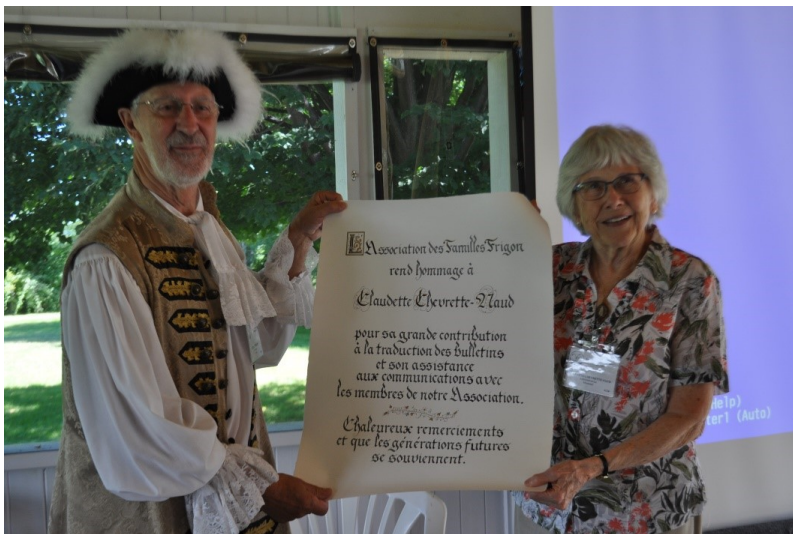 L'Association des Familles Frigon
rend hommage à
Claudette Chevrette-Naud
pour sa grande contribution
à la traduction des bulletins
et son assistance
aux communications avec
les membres de notre Association.
Chaleureux remerciements
et que les générations futures
se souviennent.
Help)
ter1 (Auto)